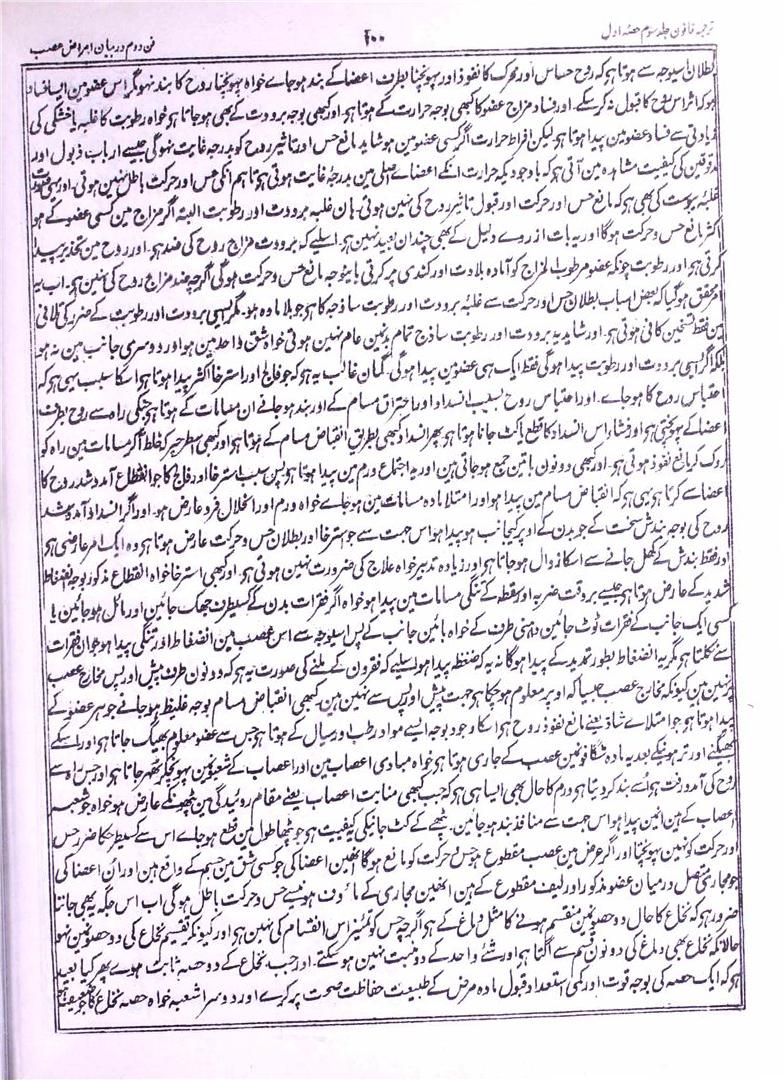 ترجمہ قانون جلد سوم حصۂ اول
۲۰۰
فن دوم در بیان امراض عصب
بطلان اسیوجہ سے ہوتا ہو کہ روح حساس اور محرک کا نفوذ اور پہونچنا بطرف اعضا کے بند ہو جاے خواہ پہونچنا روح کا بند نہو مگر اس عضو مین ایسا فساد
ہو کہ اثر اس روح کا قبول نہ کر سکے۔ اور فساد مزاج عضو کا کبھی بوجہ حرارت کے ہوتا ہو اور کبھی بوجہ برودت کے بھی ہو جاتا ہو خواہ رطوبت کا غلبہ یا خشکی کی
زیادتی سے فساد عضو مین پیدا ہوتا ہو لیکن افراط حرارت اگر کسی عضو مین ہو شاید مانع حس اور تاثیر روح کو بدرجہ غایت نہوگی جیسے ارباب ذبول اور
مدقوقین کی کیفیت مشاہدہ مین آتی ہو کہ باوجودیکہ حرارت انکے اعضاے اصلی مین بدرجہ غایت ہوتی ہو تاہم انکی حس اور حرکت باطل نہین ہوتی۔ اور یہی صورت
غلبہ یبوست کی بھی ہو کہ مانع حس اور حرکت اور قبول تاثیر روح کی نہین ہوتی۔ ہان غلبہ برودت اور رطوبت البتہ اگر مزاج مین کسی عضو کے ہو
اکثر مانع حس و حرکت ہوگا اور یہ بات از روے دلیل کے بھی چندان بعید نہین ہو۔ اسلیے کہ برودت مزاج روح کی ضد ہو۔ اور روح مین تخدیر پیدا
کرتی ہو اور رطوبت چونکہ عضو مرطوب المزاج کو آمادہ بلادت اور کندی پر کرتی ہو یا بوجہ مانع حس و حرکت ہوگی اگرچہ ضد مزاج روح کی نہین ہو۔ اب یہ
امر محقق ہو گیا کہ بعض اسباب بطلان حس اور حرکت سے غلبہ برودت اور رطوبت ساذجہ کا ہو جو بلا مادہ ہو۔ مگر ایسی برودت اور رطوبت کے ضرر کی تلافی
مین فقط تسخین کافی ہوتی ہو۔ اور شاید یہ برودت اور رطوبت ساذج تمام بدن مین عام نہین ہوتی خواہ شق واحد مین ہو اور دوسری جانب مین نہ ہو
بلکہ اگر ایسی برودت اور رطوبت پیدا ہوگی فقط ایک ہی عضو مین پیدا ہوگی۔ گمان غالب یہ ہو کہ جو فالج اور استرخا اکثر پیدا ہوتا ہو اسکا سبب یہی ہو کہ
احتباس روح کا ہو جاے۔ اور احتباس روح بسبب انسداد اور احتراق مسام کے اور بند ہو جانے ان مسامات کے ہوتا ہو جنکی راہ سے روح بطرف
اعضا کے پہونچتی ہو اور منشا اس انسداد کا قطع یا کٹ جانا ہوتا ہو پھر انسداد کبھی بطریق انقباض مسام کے ہوتا ہو اور کبھی اسطرحپر کہ خلط اگر مسامات مین راہ کو
روک کر مانع نفوذ ہوتی ہو۔ اور کبھی دونون باتین جمع ہو جاتی ہین اور یہ اجتماع ورم مین پیدا ہوتا ہو پس سبب استرخا اور فالج کا جو انقطاع آمد و شد روح کا
اعضا سے کرتا ہو یہی ہو کہ انقباض مسام مین پیدا ہو اور امتلا مادہ مسامات مین ہو جاے خواہ ورم اور انحلال فرد عارض ہو۔ اور اگر انسداد آمد و شد
روح کی بوجہ بندش سخت کے جو بدن کے اوپر کیجانب ہو پیدا ہو اس جہت سے جو استرخا اور بطلان حس و حرکت عارض ہوتا ہو وہ ایک امر عارضی ہو
اور فقط بندش کے کھل جانے سے اسکا زوال ہو جاتا ہو اور زیادہ تدبیر خواہ علاج کی ضرورت نہین ہوتی ہو۔ اور کبھی استرخا خواہ انقطاع مذکور بوجہ انضغاط
شدید کے عارض ہوتا ہو جیسے بروقت ضربہ اور سقطہ کے تنگی مسامات مین پیدا ہو خواہ اگر فقرات بدن کے کسیطرف جھک جائین اور مائل ہو جائین یا
کسی ایک جانب کے فقرات ٹوٹ جائین داہنی طرف کے خواہ بائین جانب کے پس اسیوجہ سے اس عصب مین انضغاط اور تنگی پیدا ہو جو ان فقرات
سے نکلتا ہو مگر یہ انضغاط بطور تمدید کے پیدا ہوگا نہ یہ کہ ضغطہ پیدا ہو اسلیے کہ فقرون کے ہلنے کی صورت یہ ہو کہ دونون طرف پیش اور پس مخارج عصب
پر نہین ہین کیونکہ مخارج عصب جیسا کہ اوپر معلوم ہو چکا ہو جہت پیش اور پس سے نہین ہین۔ کبھی انقباض مسام بوجہ غلیظ ہو جانے جوہر عضو کے
پیدا ہوتا ہو جو امتلاے شاذ یعنے مانع نفوذ روح ہو اسکا وجود بوجہ ایسے مواد رطب اور سیال کے ہوتا ہو جس سے عضو معلوم بھیگ جاتا ہو اور اسکے
بھیگنے اور تر ہونیکے بعد یہ مادہ شگافون مین عصب کے جاری ہوتا ہو خواہ مبادی اعصاب مین اور اعصاب کے شعبون مین پہونچکر ٹھہر جاتا ہو اور جس راہ سے
روح کی آمد و رفت ہو اسے بند کر دیتا ہو ورم کا حال بھی ایسا ہی ہو کہ جب کبھی منابت اعصاب یعنے مقام روئیدگی مین پٹھون کے عارض ہو خواہ جو شعبے
اعصاب کے ہین انمین پیدا ہو اس جہت سے منافذ بند ہو جائین۔ پٹھے کے کٹ جانیکی کیفیت ہو جو پٹھا طول مین قطع ہو جاے اس سے کسیطرحکا ضرر حس
اور حرکت کو نہین پہونچتا اور اگر عرض مین عصب مقطوع ہو حس و حرکت کو مانع ہوگا انھین اعضا کی جو کسی شق مین جسم کے واقع ہین اور ان اعضا کی
جو مجاری متصل درمیان عضو مذکور اور لیف مقطوع کے ہین انھین مجاری کے ماؤف ہونیسے حس و حرکت باطل ہوگی اب اس جگہ یہ بھی جاننا
ضرور ہو کہ نخاع کا حال دو حصون مین منقسم ہونے کا مثل دماغ کے ہو اگرچہ حس کو تمیز اس انقسام کی نہین ہو اور کیونکر تقسیم نخاع کی دو حصون مین نہو
حالانکہ نخاع بھی دماغ کی دونون قسم سے اگتا ہو اور شے واحد کے دو منبت نہین ہو سکتے۔ اور جب نخاع کے دو حصہ ثابت ہوے پھر کیا بعید
ہو کہ ایک حصہ کی بوجہ قوت اور کمی استعداد قبول مادہ مرض کے طبیعت حفاظت صحت پر کرے اور دوسرا شعبہ خواہ حصہ نخاع کا